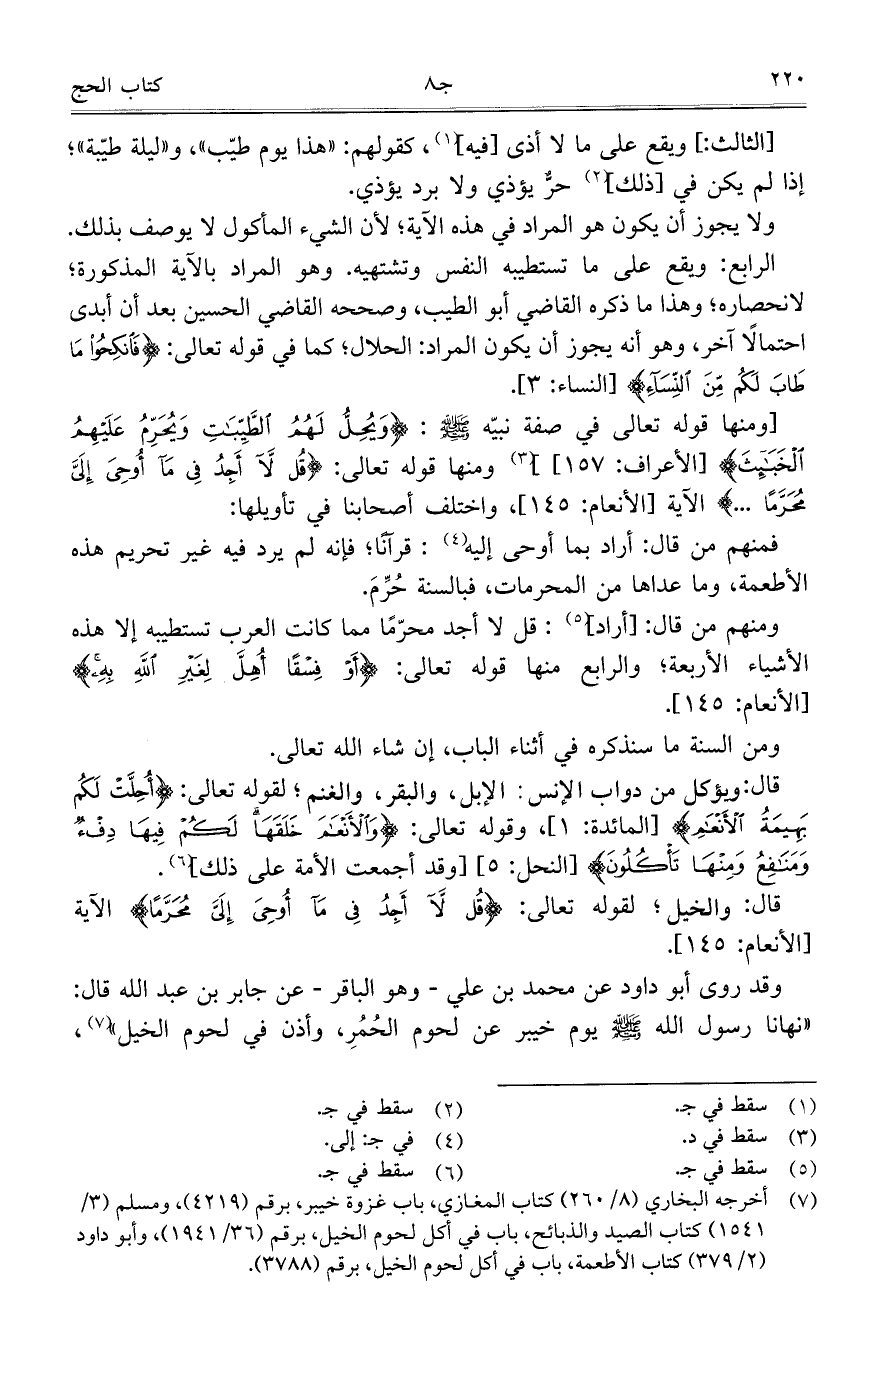 ٢٢٠ ج٨ كتاب الحج
[الثالث:] ويقع على ما لا أذى [فيه](١)، كقولهم: «هذا يوم طيّب»، و«ليلة طيّبة»؛
إذا لم يكن في [ذلك](٢) حرٌّ يؤذي ولا برد يؤذي.
ولا يجوز أن يكون هو المراد في هذه الآية؛ لأن الشيء المأكول لا يوصف بذلك.
الرابع: ويقع على ما تستطيبه النفس وتشتهيه. وهو المراد بالآية المذكورة؛
لانحصاره؛ وهذا ما ذكره القاضي أبو الطيب، وصححه القاضي الحسين بعد أن أبدى
احتمالًا آخر، وهو أنه يجوز أن يكون المراد: الحلال؛ كما في قوله تعالى: ﴿فَٱنكِحُوا۟ مَا
طَابَ لَكُم مِّنَ ٱلنِّسَآءِ﴾ [النساء: ٣].
[ومنها قوله تعالى في صفة نبيّه ﷺ : ﴿وَيُحِلُّ لَهُمُ ٱلطَّيِّبَٰتِ وَيُحَرِّمُ عَلَيْهِمُ
ٱلْخَبَٰٓئِثَ﴾ [الأعراف: ١٥٧] ](٣) ومنها قوله تعالى: ﴿قُل لَّآ أَجِدُ فِى مَآ أُوحِىَ إِلَىَّ
مُحَرَّمًا ...﴾ الآية [الأنعام: ١٤٥]، واختلف أصحابنا في تأويلها:
فمنهم من قال: أراد بما أوحى إليه(٤) : قرآنًا؛ فإنه لم يرد فيه غير تحريم هذه
الأطعمة، وما عداها من المحرمات، فبالسنة حُرِّمَ.
ومنهم من قال: [أراد](٥) : قل لا أجد محرّمًا مما كانت العرب تستطيبه إلا هذه
الأشياء الأربعة؛ والرابع منها قوله تعالى: ﴿أَوْ فِسْقًا أُهِلَّ لِغَيْرِ ٱللَّهِ بِهِۦ﴾
[الأنعام: ١٤٥].
ومن السنة ما سنذكره في أثناء الباب، إن شاء الله تعالى.
قال:ويؤكل من دواب الإنس: الإبل، والبقر، والغنم؛ لقوله تعالى: ﴿أُحِلَّتْ لَكُم
بَهِيمَةُ ٱلْأَنْعَٰمِ﴾ [المائدة: ١]، وقوله تعالى: ﴿وَٱلْأَنْعَٰمَ خَلَقَهَا ۗ لَكُمْ فِيهَا دِفْءٌ
وَمَنَٰفِعُ وَمِنْهَا تَأْكُلُونَ﴾ [النحل: ٥] [وقد أجمعت الأمة على ذلك](٦).
قال: والخيل؛ لقوله تعالى: ﴿قُل لَّآ أَجِدُ فِى مَآ أُوحِىَ إِلَىَّ مُحَرَّمًا﴾ الآية
[الأنعام: ١٤٥].
وقد روى أبو داود عن محمد بن علي - وهو الباقر - عن جابر بن عبد الله قال:
«نهانا رسول الله ﷺ يوم خيبر عن لحوم الحُمُرِ، وأذن في لحوم الخيل»(٧)،
(١) سقط في جـ. (٢) سقط في جـ.
(٣) سقط في د. (٤) في جـ: إلى.
(٥) سقط في جـ. (٦) سقط في جـ.
(٧) أخرجه البخاري (٨/ ٢٦٠) كتاب المغازي، باب غزوة خيبر، برقم (٤٢١٩)، ومسلم (٣/
١٥٤١) كتاب الصيد والذبائح، باب في أكل لحوم الخيل، برقم (٣٦/ ١٩٤١)، وأبو داود
(٢/ ٣٧٩) كتاب الأطعمة، باب في أكل لحوم الخيل، برقم (٣٧٨٨).